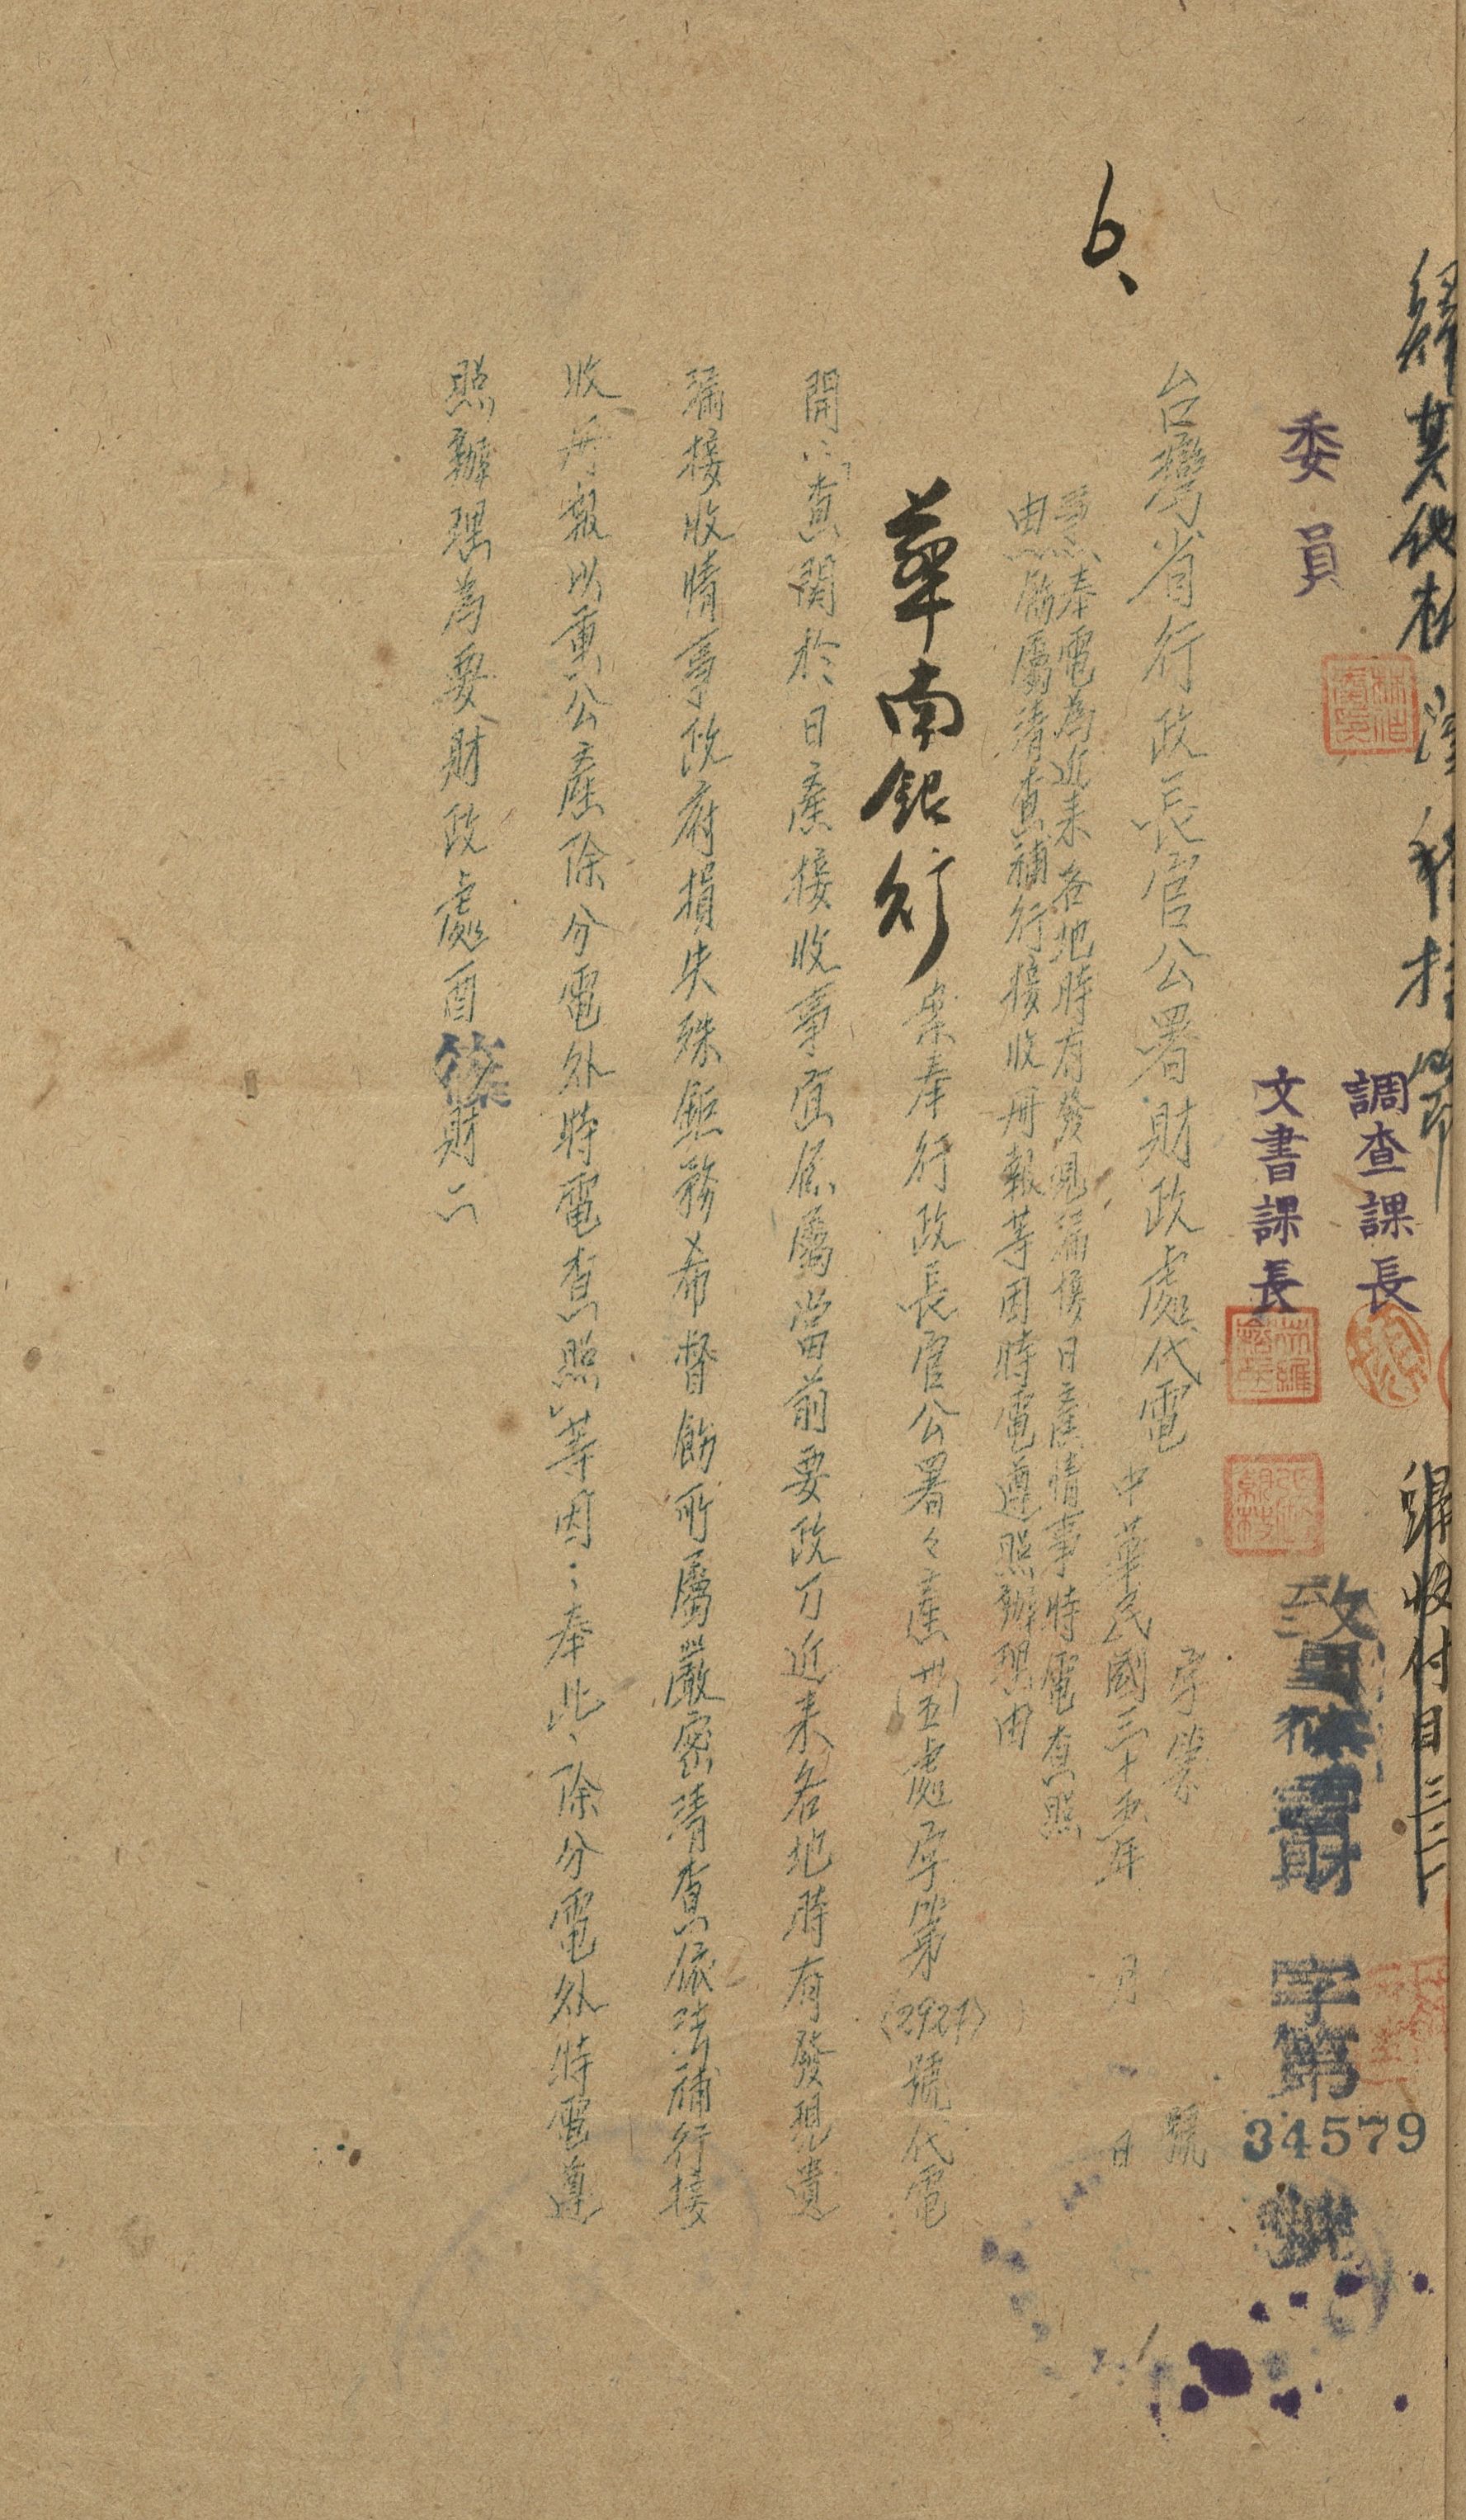 調查課長
委員
文書課長
致
財
字第
34579
號
台灣省行政長官公署財政處代電
字第 號
中華民國三十五年 月 日
奉電為近来各地時有發現漏接日產情事特電查照
飭屬清查補行接收冊報等因特電遵照辦理由
6、
華南銀行
案奉行政長官公署々產(卅五)處字第(2927)號代電
開：「查關於日產接收事宜係屬當前要政乃近来各地時有發現遺
漏接收情事政府損失殊鉅務希督飭所屬嚴密清查依法補行接
收冊報以重公產除分電外特電查照」等因；奉此、除分電外特電遵
照辦理為要財政處酉條財六